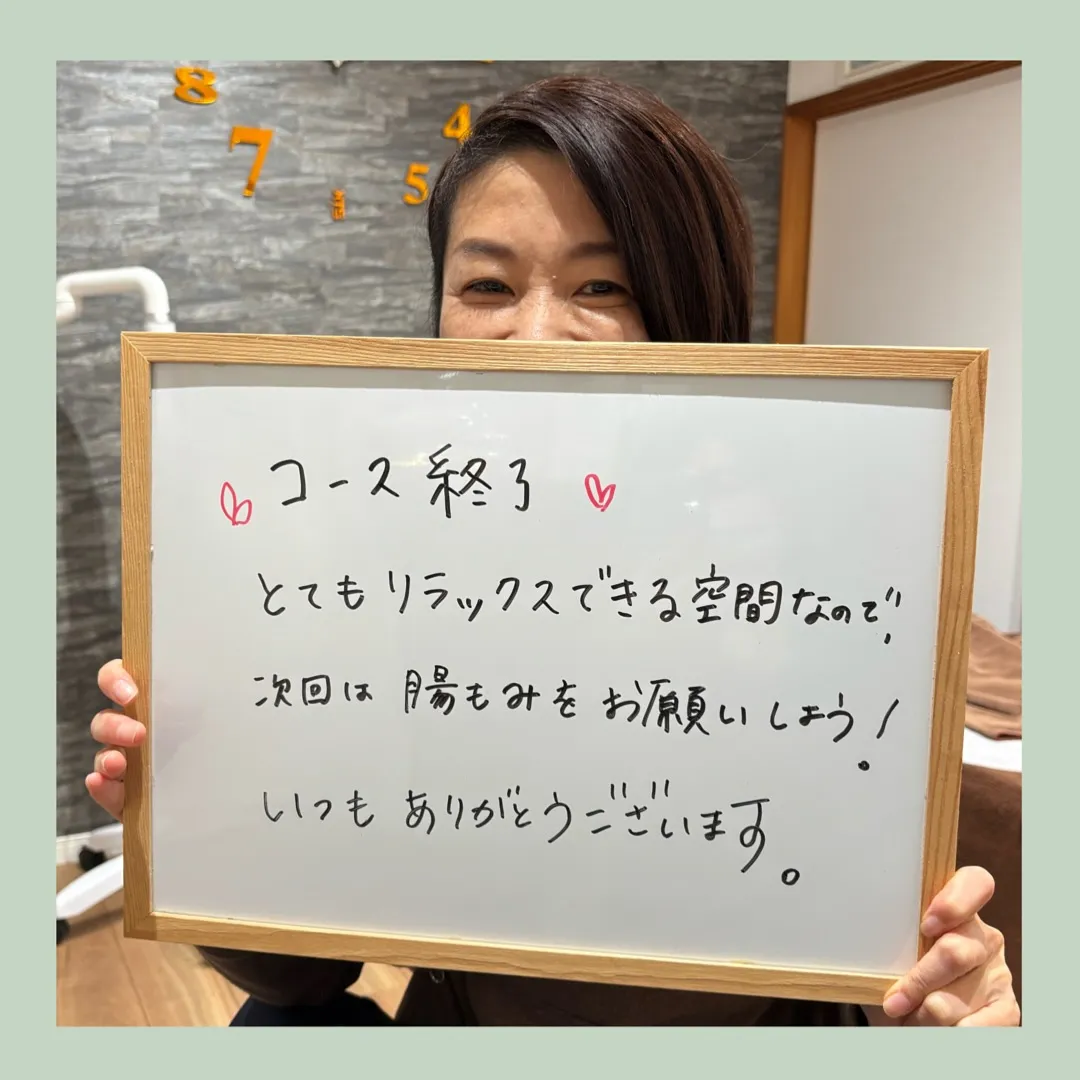 8
7
4
5
コース終了
とてもリラックスできる空間なので、
次回は腸もみをお願いしよう!
いつもありがとうございます。